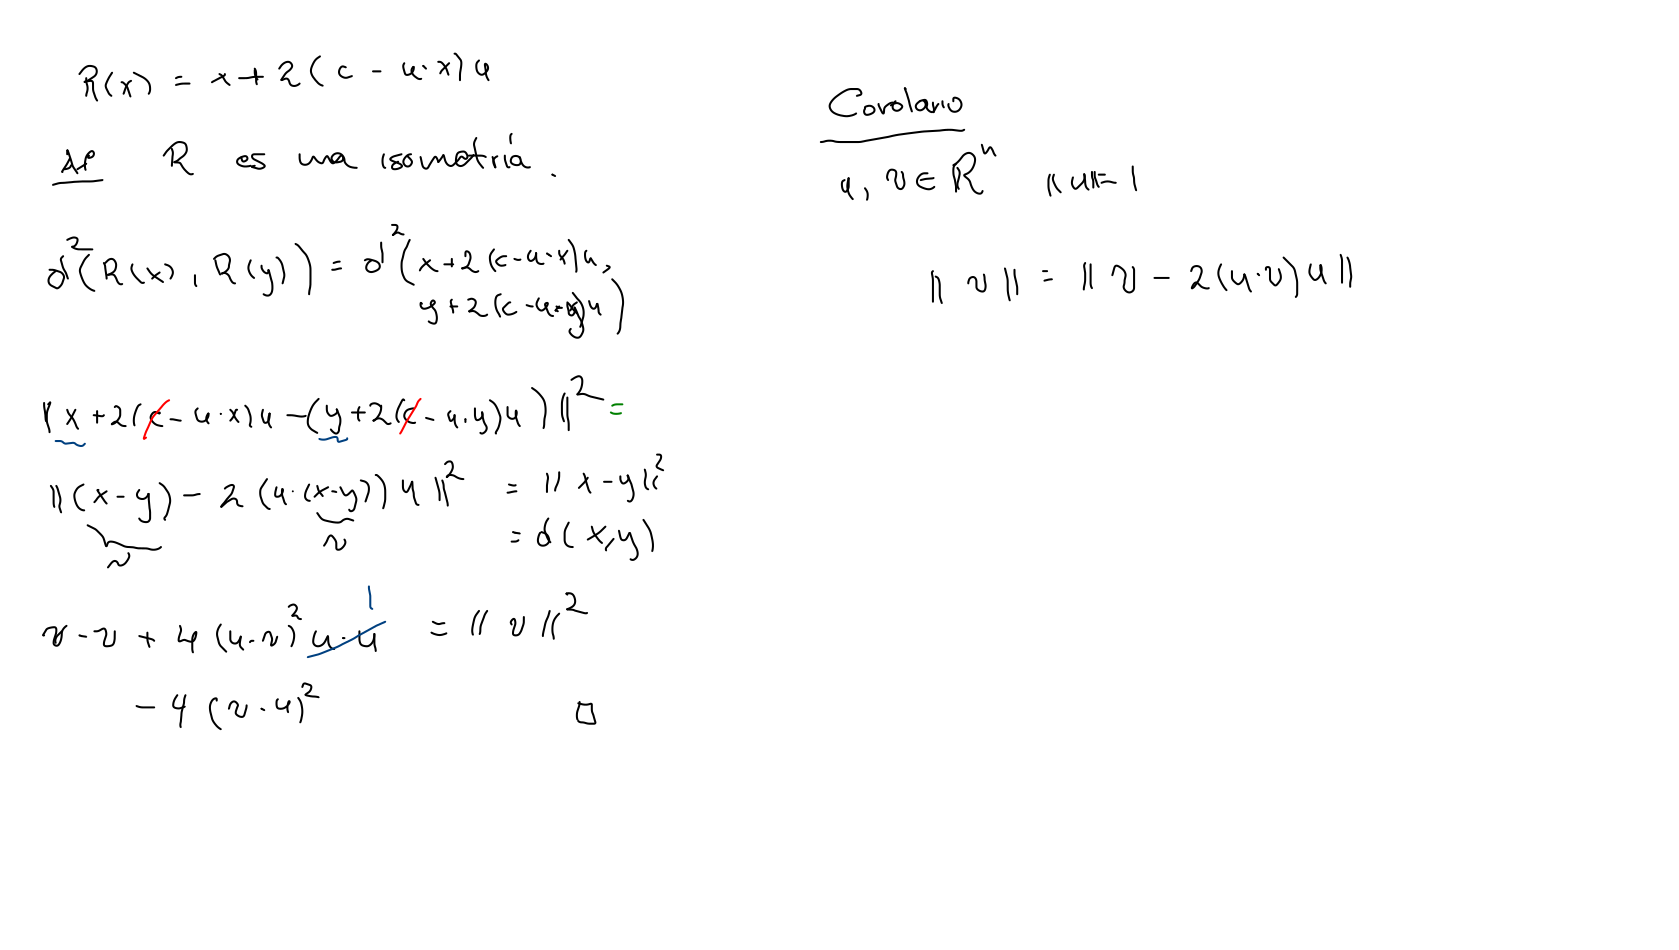 R(x) = x + 2(c - u·x)u
Af R es una isometría.
d²(R(x), R(y)) = d²(x+2(c-u·x)u,
y+2(c-u·y)u)
‖x+2(c-u·x)u-(y+2(c-u·y)u)‖² =
‖(x-y)-2(u·(x-y))u‖² = ‖x-y‖²
v v = d(x,y)
v·v + 4(u·v)² u·u 1 = ‖v‖²
- 4(v·u)² □
Corolario
u, v ∈ ℝⁿ ‖u‖=1
‖v‖ = ‖v - 2(u·v)u‖